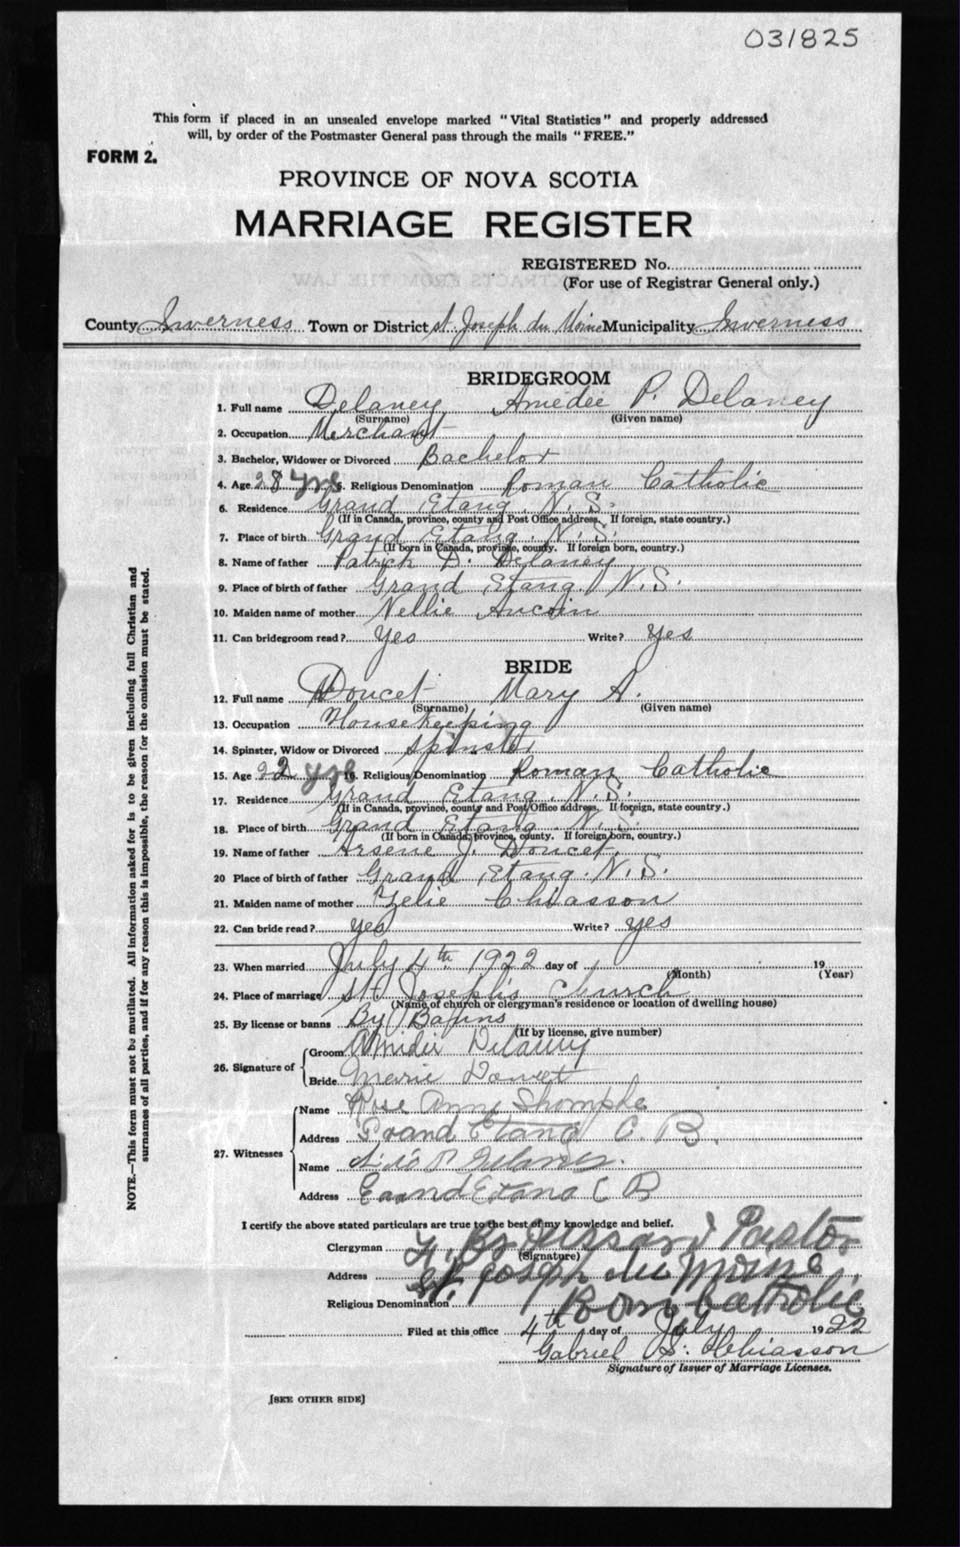 031825
This form if placed in an unsealed envelope marked "Vital Statistics" and properly addressed
will, by order of the Postmaster General pass through the mails "FREE."
FORM 2.
PROVINCE OF NOVA SCOTIA
MARRIAGE REGISTER
REGISTERED No.
(For use of Registrar General only.)
County Inverness Town or District St. Joseph du Moine Municipality Inverness
BRIDEGROOM
1. Full name Delaney Amédée P. Delaney
(Surname) (Given name)
2. Occupation Merchant
3. Bachelor, Widower or Divorced Bachelor
4. Age 28 yrs 5. Religious Denomination Roman Catholic
6. Residence Grand Etang N.S.
(If in Canada, province, county and Post Office address. If foreign, state country.)
7. Place of birth Grand Etang. N.S.
(If born in Canada, province, county. If foreign born, country.)
8. Name of father Patrick D. Delaney
9. Place of birth of father Grand Etang N.S.
10. Maiden name of mother Nellie Aucoin
11. Can bridegroom read? Yes Write? Yes
BRIDE
12. Full name Doucet Mary A.
(Surname) (Given name)
13. Occupation Housekeeping
14. Spinster, Widow or Divorced Spinster
15. Age 22 yrs 16. Religious Denomination Roman Catholic
17. Residence Grand Etang. N.S.
(If in Canada, province, county and Post Office address. If foreign, state country.)
18. Place of birth Grand Etang N.S.
(If born in Canada, province, county. If foreign born, country.)
19. Name of father Arsene J. Doucet
20 Place of birth of father Grand Etang. N.S.
21. Maiden name of mother Zelie Chiasson
22. Can bride read? yes Write? yes
23. When married July 4th 1922 day of 19
(Month) (Year)
24. Place of marriage St Joseph's Church
(Name of church or clergyman's residence or location of dwelling house)
25. By license or banns By Banns
(If by license, give number)
26. Signature of
Groom Amédée Delaney
Bride Marie Doucet
27. Witnesses
Name Rose Ann Shomphe
Address Grand Etang C. B.
Name
Address Grand Etang C B
I certify the above stated particulars are true to the best of my knowledge and belief.
Clergyman Pastor
(Signature)
Address St. Joseph du Moine
Religious Denomination Rom Catholic
Filed at this office 4th day of July 1922
Gabriel S. Chiasson
Signature of Issuer of Marriage Licenses.
[SEE OTHER SIDE]
NOTE.—This form must not be mutilated. All information asked for is to be given including full Christian and
surnames of all parties, and if for any reason this is impossible, the reason for the omission must be stated.